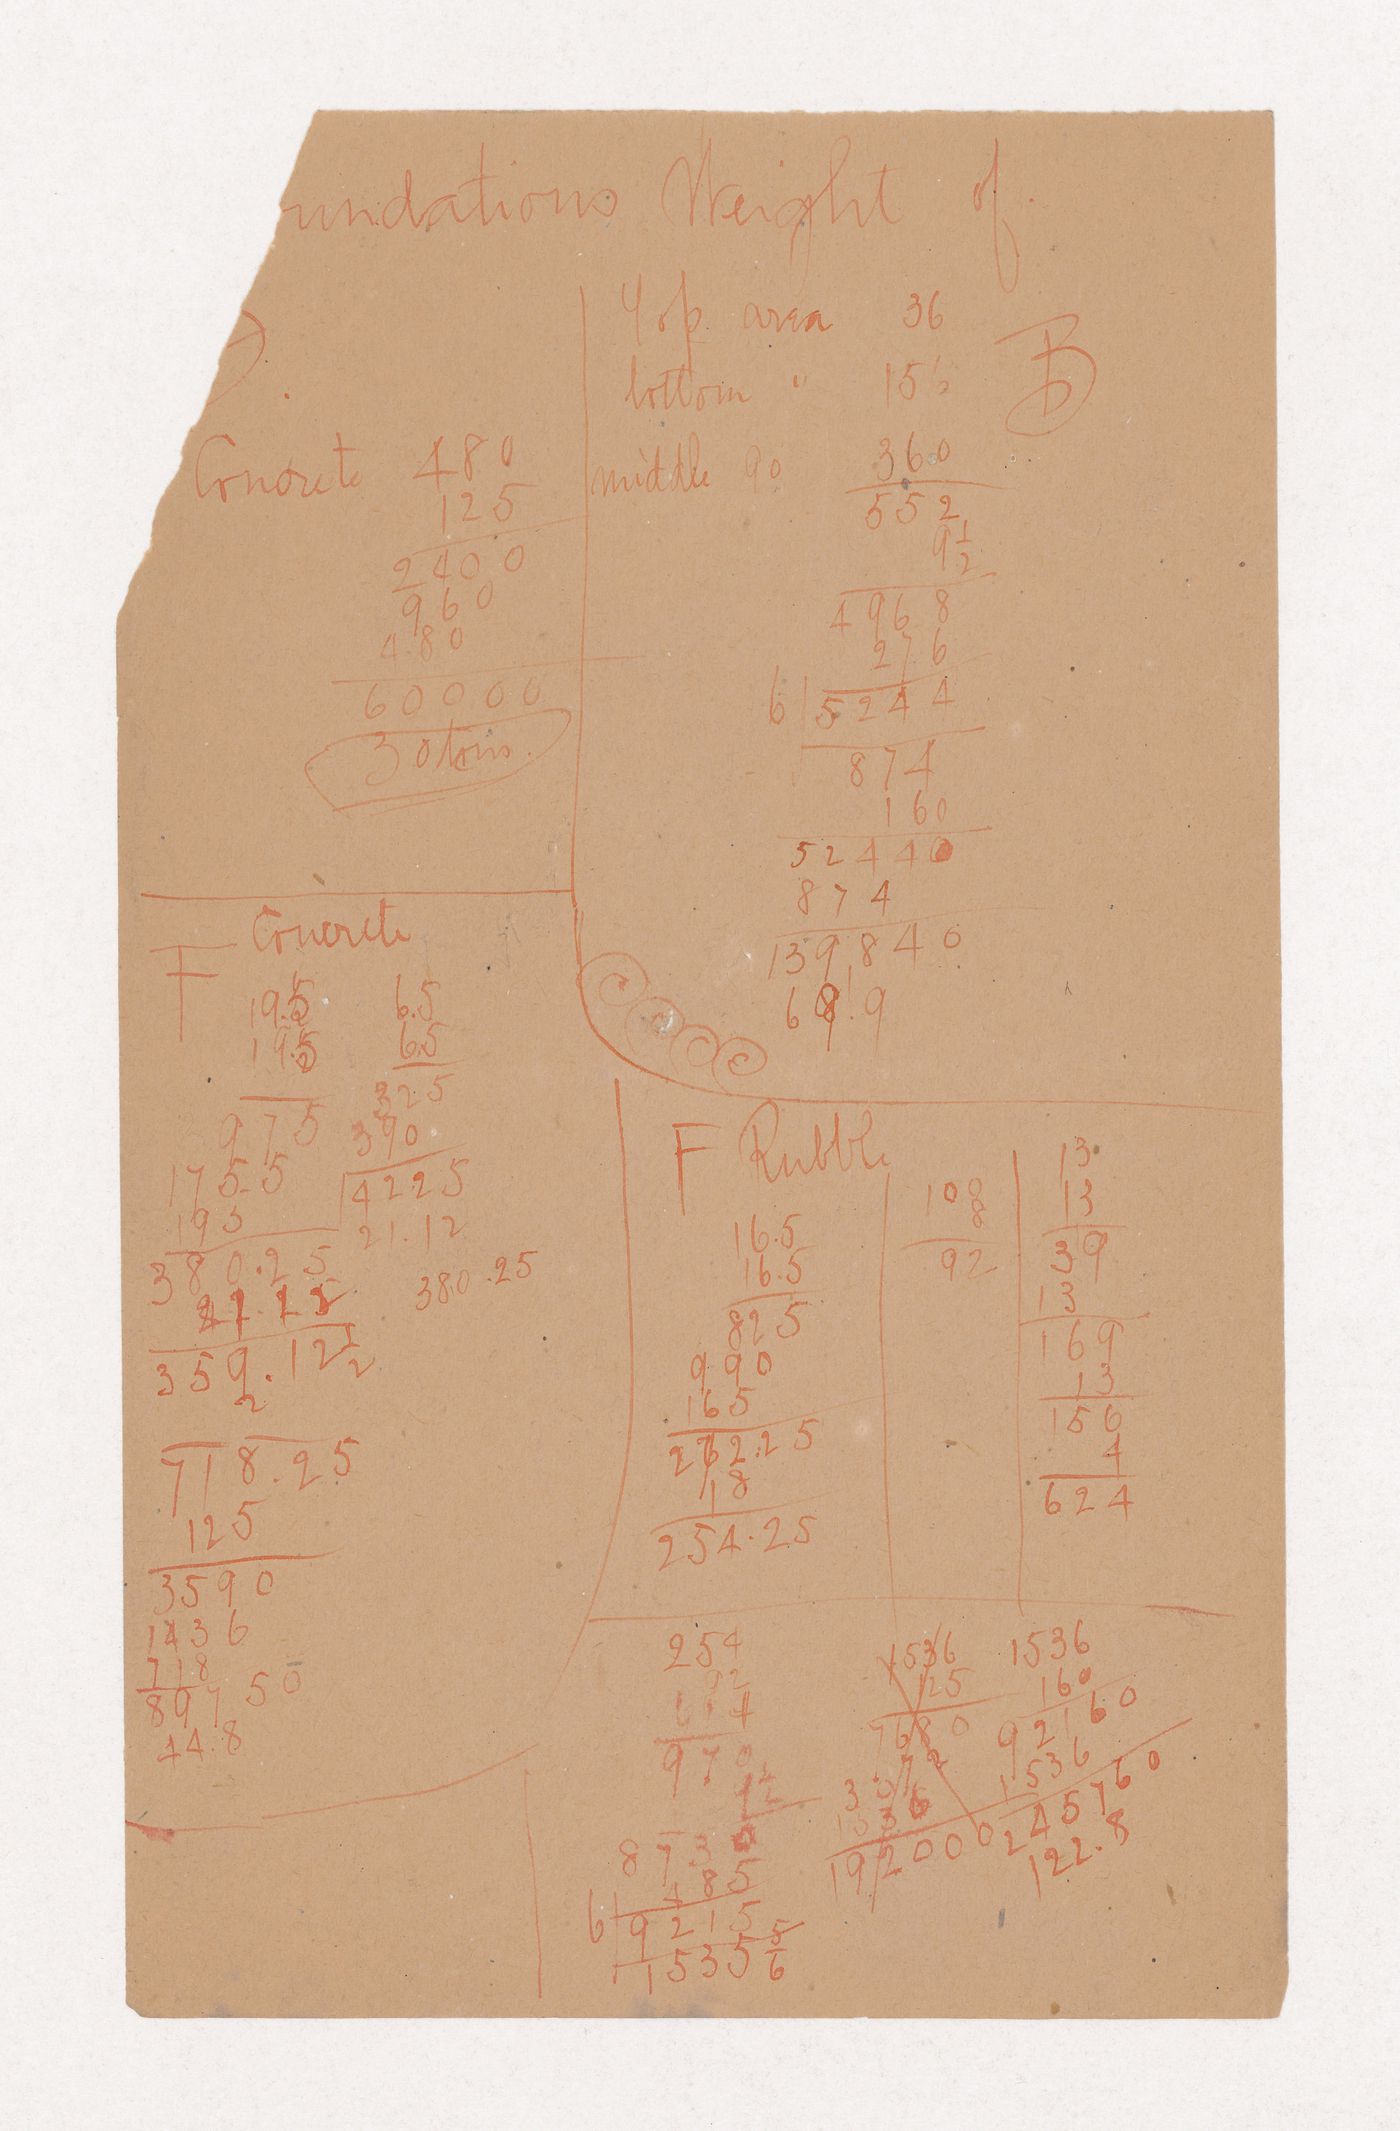 undations Weight of
Concrete 480
125
2400
960
480
60000
30 tons.
Top area 36
B
bottom " 156
middle 90 360
552
9½
4968
276
6 5244
874
160
52440
874
139,840
69.9
F Concrete
19.5
19.5
975
175.5
195
380.25
21.12
359.12½
2
718.25
125
3590
1436
718
89750
44.8
6.5
6.5
325
390
4225
21.12
380.25
F Rubble
16.5
16.5
825
990
165
262.25
18
254.25
108
8
92
13
13
39
13
169
13
156
4
624
254
92
624
970
9½
8730
485
6 9215
1535 5/6
1536
125
7680
3072
1536
192000
1536
160
92160
1536
245760
122.8